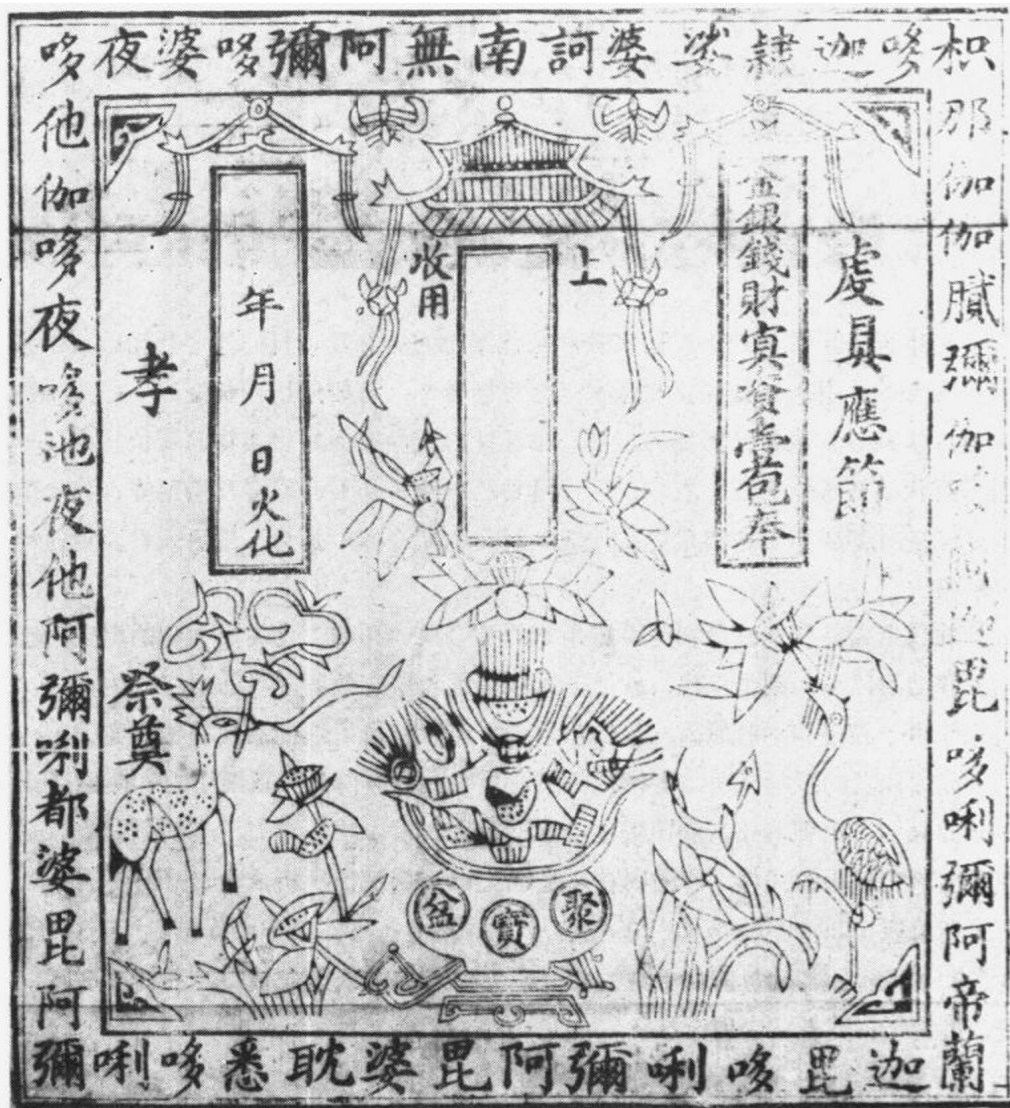 南無阿彌哆婆夜哆
他伽哆夜哆池夜他阿彌唎都婆毘阿
彌唎哆悉耽婆毘阿彌唎哆毘迦蘭
帝阿彌唎哆毘
伽彌膩伽伽那枳
哆迦隸娑婆訶
虔具應節
金銀錢財㝠資壹苞奉
上
收用
年月日火化
孝
祭奠
聚寶盆